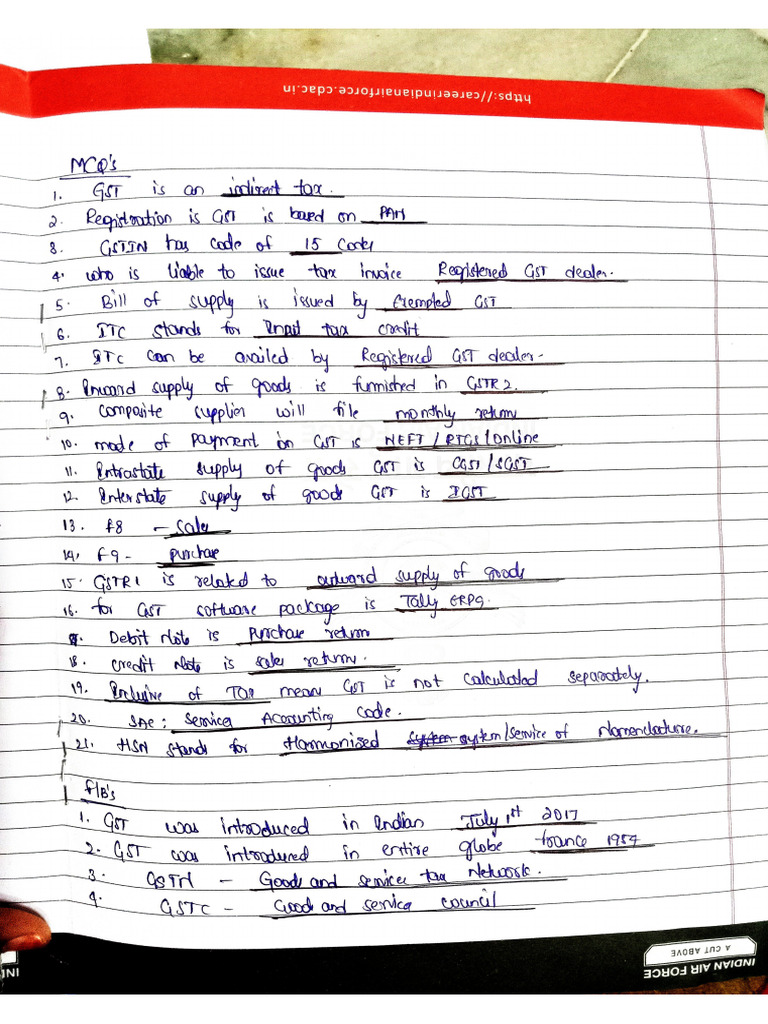 https://careerindianairforce.cdac.in
MCQ's
1. GST is an indirect tax.
2. Registration is GST is based on PAN
3. GSTIN has code of 15 Codes
4. who is liable to issue tax invoice Registered GST dealer.
5. Bill of supply is issued by Exempted GST
6. ITC stands for Input tax credit
7. ITC can be availed by Registered GST dealer.
8. Inward supply of goods is furnished in GSTR2.
9. Composite supplier will file monthly return
10. mode of payment in GST is NEFT/RTGS/Online
11. Intrastate supply of goods GST is CGST/SGST
12. Interstate supply of goods GST is IGST
13. F8 - Sales
14. F9 - Purchase
15. GSTR1 is related to outward supply of goods
16. for GST software package is Tally ERP9.
Debit Note is Purchase return
18. Credit Note is sales return.
19. Inclusive of Tax mean GST is not calculated separately.
20. SAC: Services Accounting Code.
21. HSN stands for Harmonised system/service of Nomenclature.
F/B's
1. GST was introduced in Indian July 1st 2017
2. GST was introduced in entire globe france 1954
3. GSTN - Goods and services tax Network.
4. GSTC - Good and service council
INDIAN AIR FORCE
A CUT ABOVE
INI